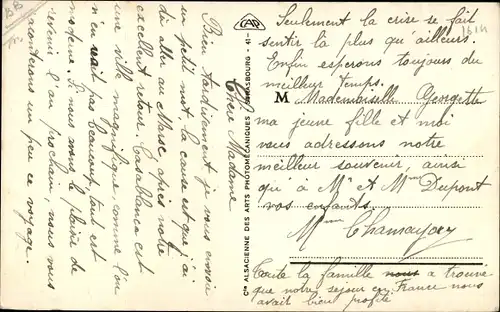 Chère Madame
Bien tardivement je vous envoie
un petit mot, la cause est que j'ai
dû aller au Maroc après notre
excellent retour. Casablanca est
une ville magnifique comme l'on
n'en voit pas beaucoup, tout est
moderne. Si nous avons le plaisir de
revenir l'an prochain, nous vous
raconterons un peu ce voyage.
Seulement la crise se fait
sentir là plus qu'ailleurs.
Enfin esperons toujours du
meilleur temps.
M Mademoiselle Georgette
ma jeune fille et moi
vous adressons notre
meilleur souvenir, ainsi
qui à Mr et Mme Dupont
vos enfants.
Mme
Toute la famille nous a trouve
que notre sejour en France nous
avait bien profité
CAP
Cie ALSACIENNE DES ARTS PHOTOMÉCANIQUES STRASBOURG - 41-